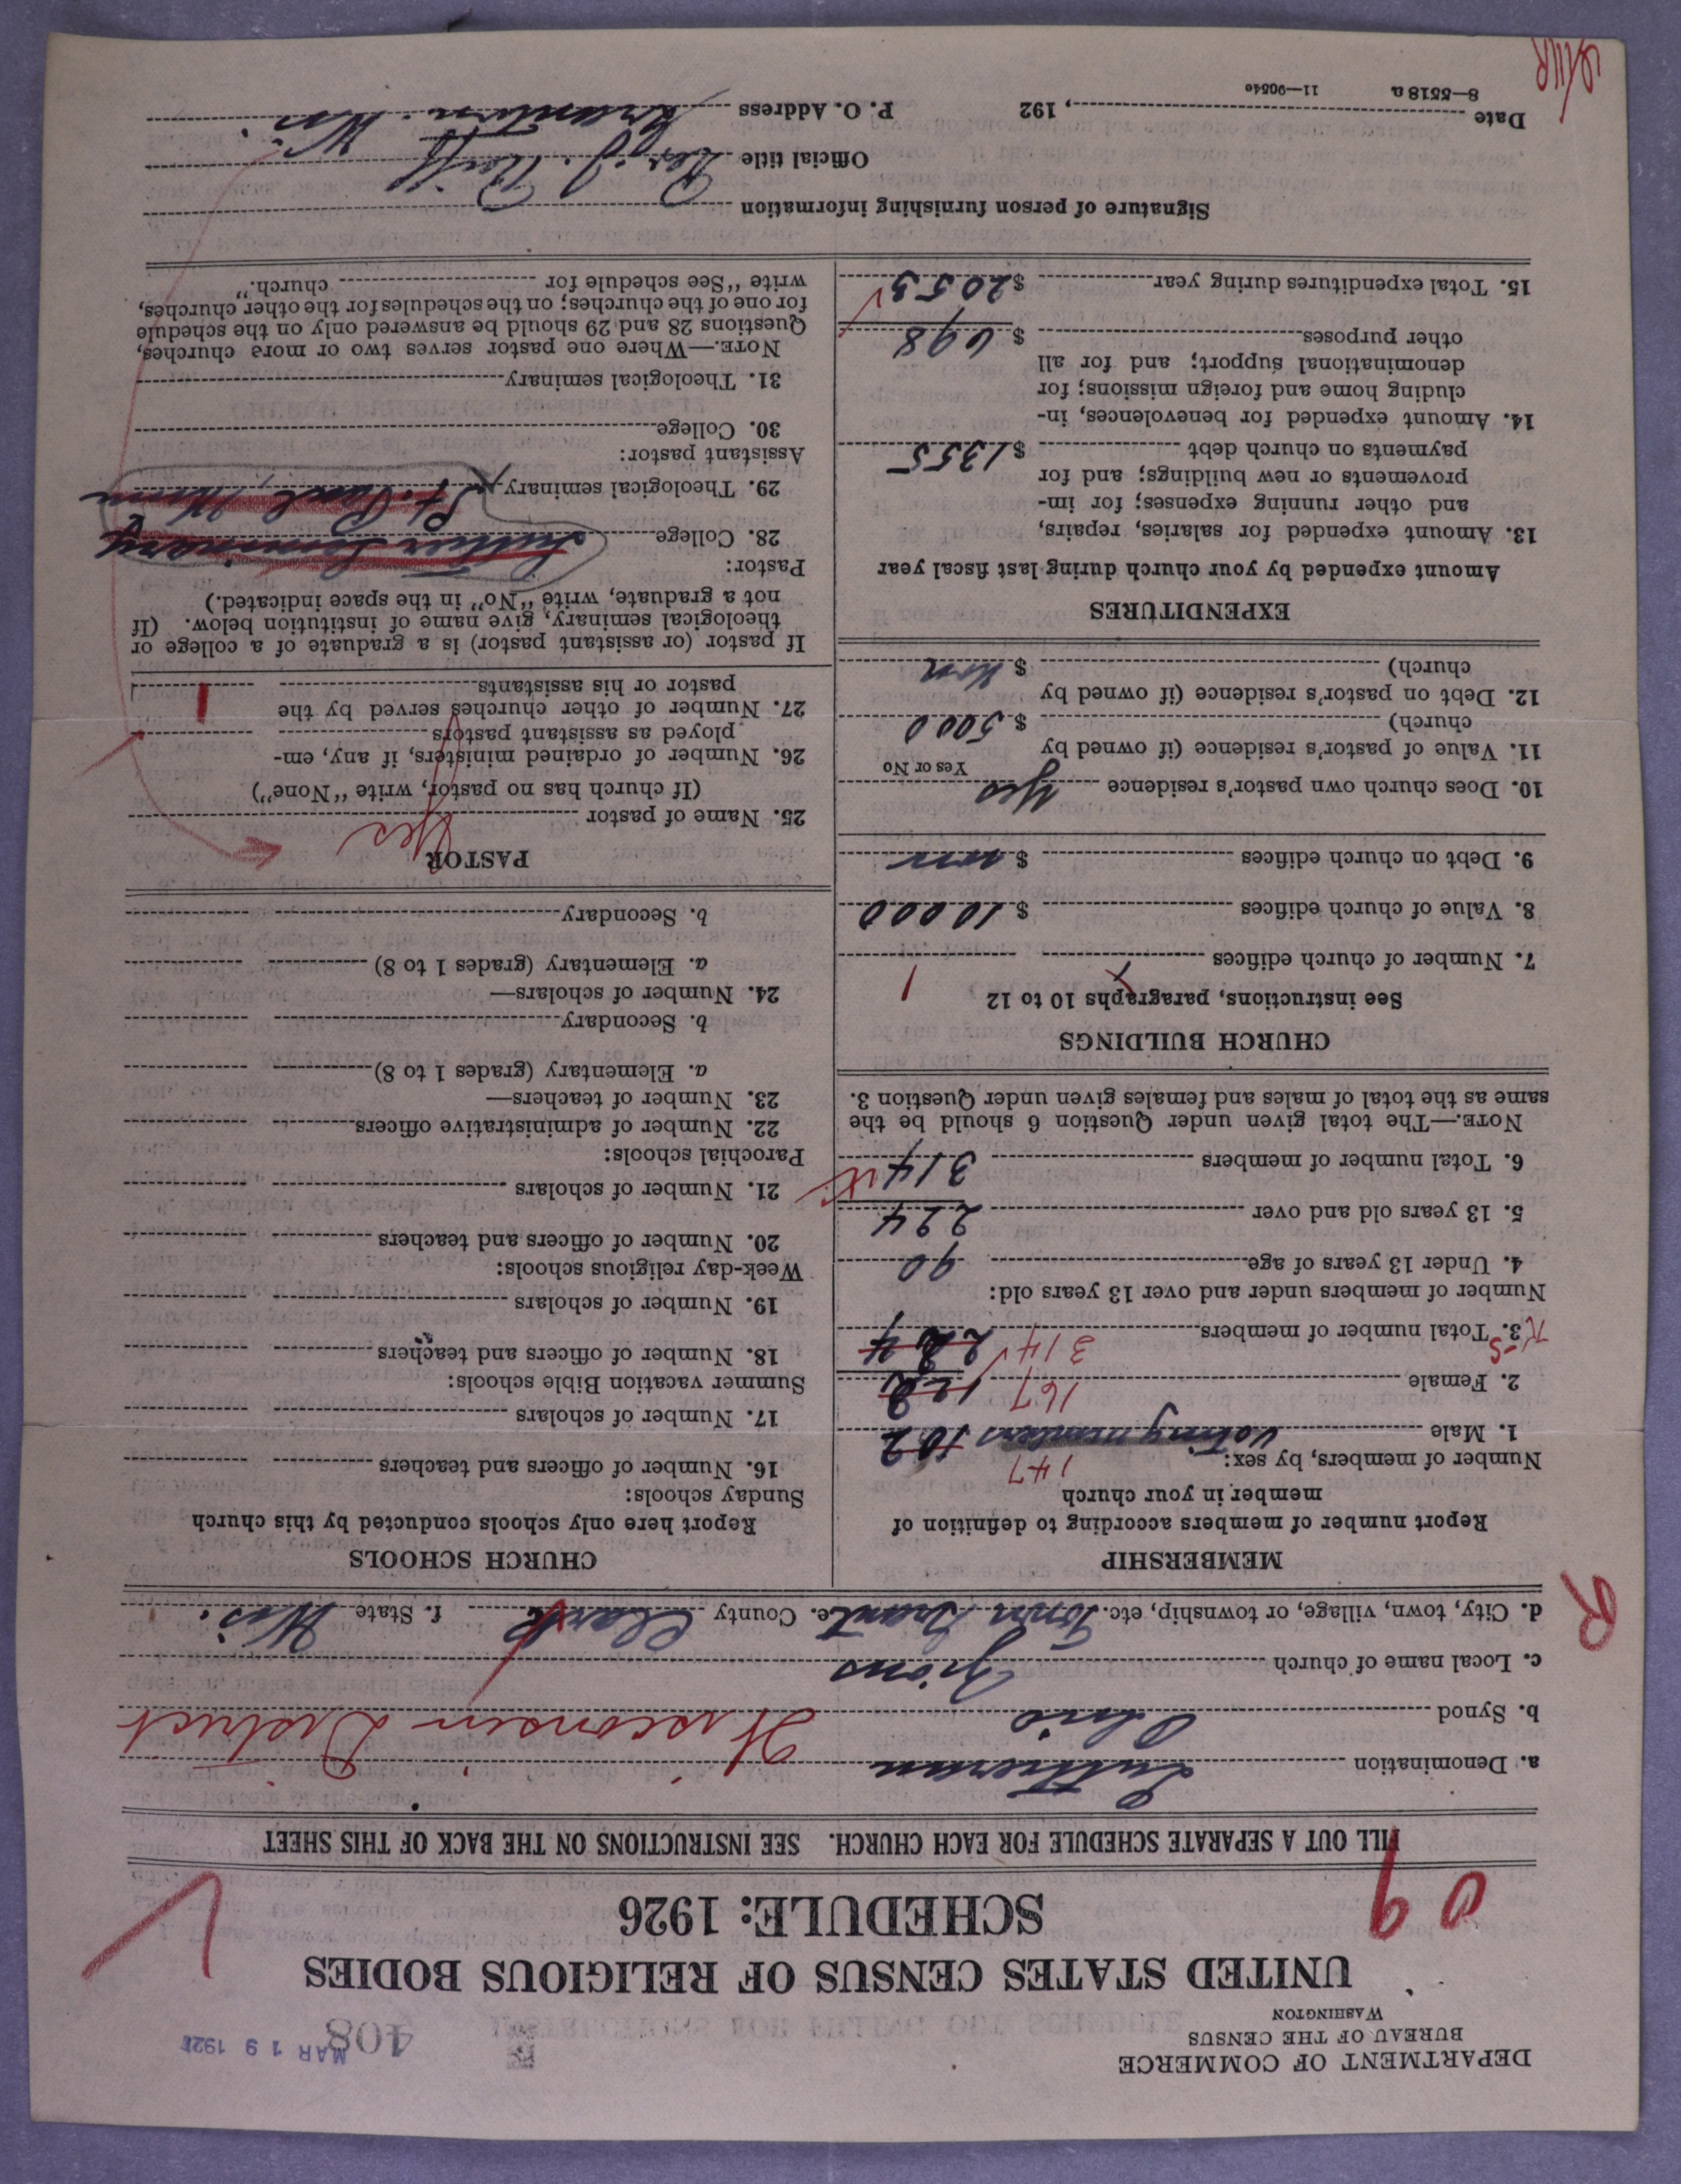 DEPARTMENT OF COMMERCE
BUREAU OF THE CENSUS
WASHINGTON
408
MAR 19 192
UNITED STATES CENSUS OF RELIGIOUS BODIES
SCHEDULE: 1926
09
FILL OUT A SEPARATE SCHEDULE FOR EACH CHURCH. SEE INSTRUCTIONS ON THE BACK OF THIS SHEET
a. Denomination Lutheran
b. Synod Ohio Wisconsin District
c. Local name of church Zions
d. City, town, village, or township, etc. Town Grant e. County Clark f. State Wis.
R
MEMBERSHIP
Report number of members according to definition of
member in your church
Number of members, by sex: 147
1. Male voting members 102
2. Female 167 122
3. Total number of members 314 224
Number of members under and over 13 years old:
4. Under 13 years of age 90
5. 13 years old and over 224
6. Total number of members 314
NOTE.—The total given under Question 6 should be the
same as the total of males and females given under Question 3.
CHURCH BUILDINGS
See instructions, paragraphs 10 to 12
7. Number of church edifices 1
8. Value of church edifices $10000
9. Debt on church edifices $ non
10. Does church own pastor's residence Yes
Yes or No
11. Value of pastor's residence (if owned by
church) $ 5000
12. Debt on pastor's residence (if owned by
church) $ non
EXPENDITURES
Amount expended by your church during last fiscal year
13. Amount expended for salaries, repairs,
and other running expenses; for im-
provements or new buildings; and for
payments on church debt $ 1355
14. Amount expended for benevolences, in-
cluding home and foreign missions; for
denominational support; and for all
other purposes $ 698
15. Total expenditures during year $ 2053
CHURCH SCHOOLS
Report here only schools conducted by this church
Sunday schools:
16. Number of officers and teachers
17. Number of scholars
Summer vacation Bible schools:
18. Number of officers and teachers
19. Number of scholars
Week-day religious schools:
20. Number of officers and teachers
21. Number of scholars
Parochial schools:
22. Number of administrative officers
23. Number of teachers—
a. Elementary (grades 1 to 8)
b. Secondary
24. Number of scholars—
a. Elementary (grades 1 to 8)
b. Secondary
PASTOR
25. Name of pastor Yes
(If church has no pastor, write "None")
26. Number of ordained ministers, if any, em-
ployed as assistant pastors
27. Number of other churches served by the
pastor or his assistants 1
If pastor (or assistant pastor) is a graduate of a college or
theological seminary, give name of institution below. (If
not a graduate, write "No" in the space indicated.)
Pastor:
28. College Luther Seminary
29. Theological seminary St. Paul, Minn
Assistant pastor:
30. College
31. Theological seminary
NOTE.—Where one pastor serves two or more churches,
Questions 28 and 29 should be answered only on the schedule
for one of the churches; on the schedules for the other churches,
write "See schedule for church."
Signature of person furnishing information
Official title
Date , 192 P. O. Address Granton. Wis.
8—5518a 11—9054o